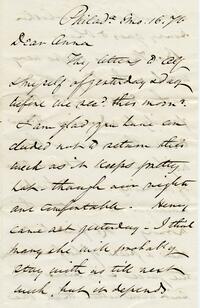 Philad.
Dear Anna
Thy letters to
& myself of yesterday & day
before we rec.d this morng.
I am glad you have con
cluded not to return this
week as it keeps pretty
hot - though our nights
are comfortable. Henry
came out yesterday - I think
Mary she will probably
stay with us till next
week, but it depends